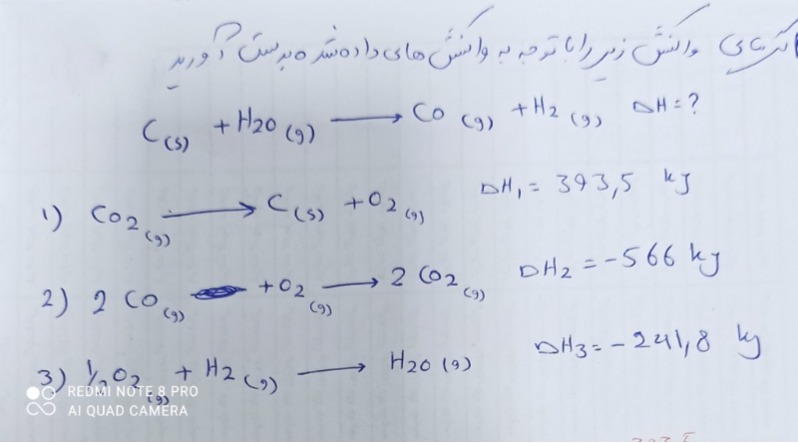 گرمای واکنش زیر را با توجه به واکنش های داده شده بدست آورید
C(s) + H2O (g) ⟶ CO (g) + H2 (g) DH = ?
1) CO2 (g) ⟶ C (s) + O2 (g) DH1 = 393,5 kj
2) 2 CO (g) + O2 (g) ⟶ 2 CO2 (g) DH2 = -566 kj
3) ½O2 (g) + H2 (g) ⟶ H2O (g) DH3 = -241,8 kj
REDMI NOTE 8 PRO
AI QUAD CAMERA